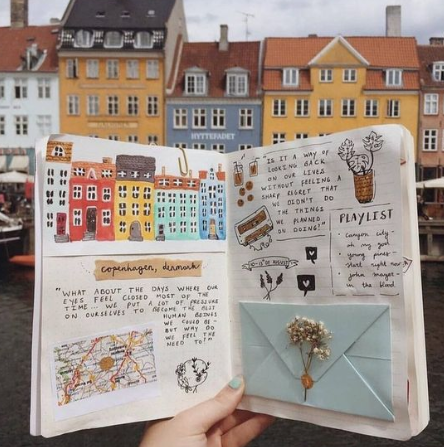 HYTTEFADET
copenhagen, denmark
"WHAT ABOUT THE DAYS WHERE OUR
EYES FEEL CLOSED MOST OF THE
TIME... WE PUT A LOT OF PRESSURE
ON OURSELVES TO BECOME THE BEST
HUMAN BEINGS
WE COULD BE -
BUT WHY DO
WE FEEL THE
NEED TO?"
IS IT A WAY OF
LOOKING BACK
ON OUR LIVES
WITHOUT FEELING A
SHARP REGRET THAT
WE DIDN'T DO
THE THINGS
WE PLANNED
ON DOING?"
PLAYLIST
- canyon city -
oh my god
- young
right now
- john mayer -
in the blood